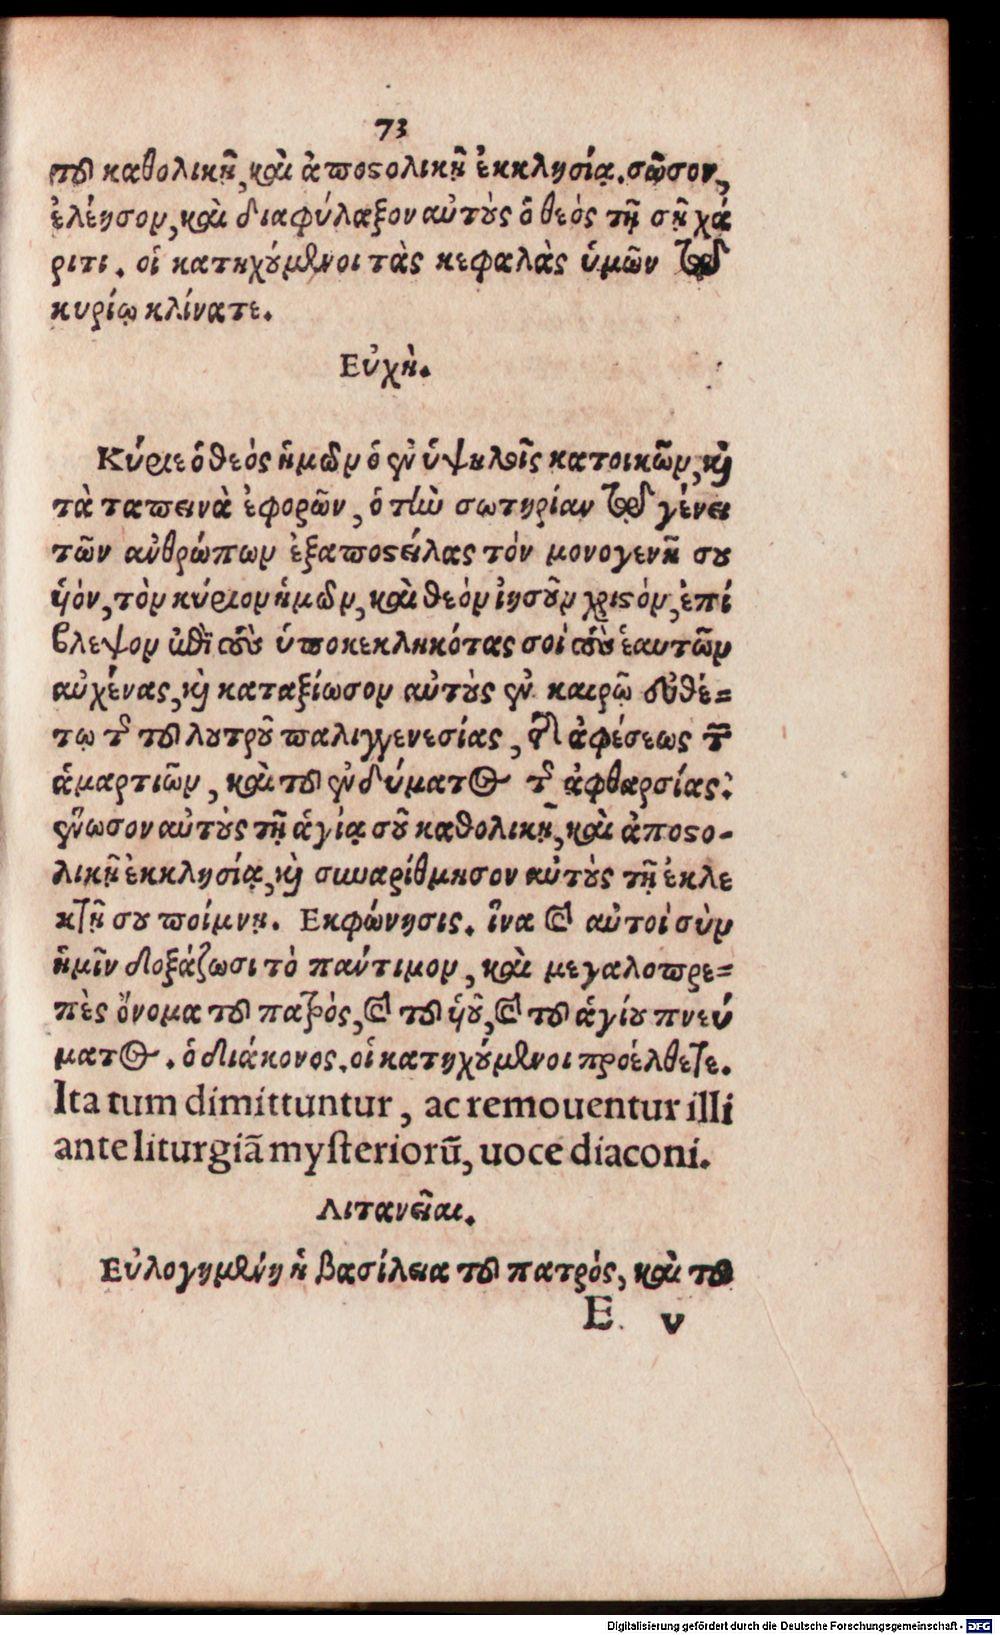 73
τοῦ καθολικῇ, καὶ ἀποστολικῇ ἐκκλησίᾳ. σῶσον,
ἐλέησον, καὶ διαφύλαξον αὐτοὺς ὁ θεὸς τῇ σῇ χά
ριτι. οἱ κατηχούμενοι τὰς κεφαλὰς ὑμῶν τῷ
κυρίῳ κλίνατε.
Εὐχὴ.
Κύριε ὁ θεὸς ἡμῶν ὁ ἐν ὑψηλοῖς κατοικῶν, καὶ
τὰ ταπεινὰ ἐφορῶν, ὁ τὴν σωτηρίαν τῷ γένει
τῶν ἀνθρώπων ἐξαποστείλας τόν μονογενῆ σου
ὑόν, τὸν κύριον ἡμῶν, καὶ θεὸν ἰησοῦν χριστόν, ἐπί
βλεψον ἐπὶ τοὺς ὑποκεκληκότας σοὶ τοὺς ἑαυτῶν
αὐχένας, καὶ καταξίωσον αὐτοὺς ἐν καιρῷ εὐθέ=
τῳ τοῦ λουτροῦ παλιγγενεσίας, τῆς ἀφέσεως τῶν
ἁμαρτιῶν, καὶ τοῦ ἐνδύματος τῆς ἀφθαρσίας:
ἕνωσον αὐτοὺς τῇ ἁγίᾳ σοῦ καθολικῇ, καὶ ἀποστο-
λικῇ ἐκκλησίᾳ, καὶ συναρίθμησον αὐτοὺς τῇ ἐκλε
κτῇ σου ποίμνῃ. Εκφώνησις. ἵνα καὶ αὐτοὶ σὺν
ἡμῖν δοξάζωσι τὸ πάντιμον, καὶ μεγαλοπρε=
πὲς ὄνομα τοῦ πατρός, καὶ τοῦ ὑοῦ, καὶ τοῦ ἁγίου πνεύ
ματος. ὁ διάκονος. οἱ κατηχούμενοι προέλθετε.
Ita tum dimittuntur, ac remouentur illi
ante liturgiã mysteriorũ, uoce diaconi.
Λιτανεῖαι.
Εὐλογημένη ἡ βασίλεια τοῦ πατρός, καὶ τοῦ
E v
Digitalisierung gefördert durch die Deutsche Forschungsgemeinschaft - DFG